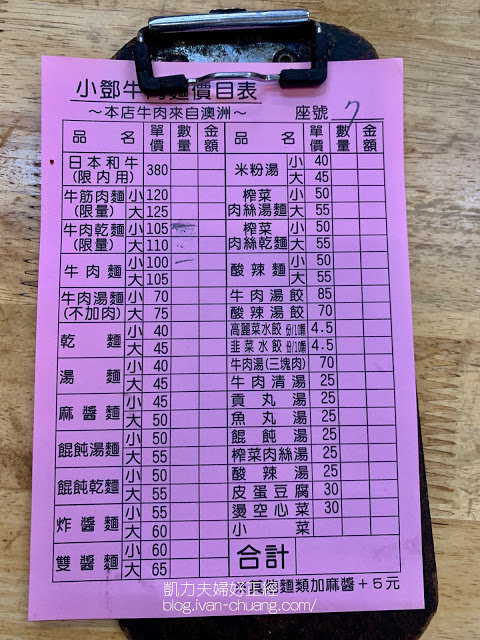 小鄧牛肉麵價目表
～本店牛肉來自澳洲～ 座號 7
品名 單價 數量 金額 品名 單價 數量 金額
日本和牛(限內用) 380
牛筋肉麵(限量) 小 120
大 125
牛肉乾麵(限量) 小 105
大 110
牛肉麵 小 100
大 105
牛肉湯麵(不加肉) 小 70
大 75
乾麵 小 40
大 45
湯麵 小 40
大 45
麻醬麵 小 45
大 50
餛飩湯麵 小 50
大 55
餛飩乾麵 小 50
大 55
炸醬麵 小 55
大 60
雙醬麵 小 60
大 65
米粉湯 小 40
大 45
榨菜肉絲湯麵 小 50
大 55
榨菜肉絲乾麵 小 50
大 55
酸辣麵 小 50
大 55
牛肉湯餃 85
酸辣湯餃 70
高麗菜水餃 份/10顆 4.5
韭菜水餃 份/10顆 4.5
牛肉湯(三塊肉) 70
牛肉清湯 25
貢丸湯 25
魚丸湯 25
餛飩湯 25
榨菜肉絲湯 25
酸辣湯 25
皮蛋豆腐 30
燙空心菜 30
小菜
合計
麵類加麻醬＋5元
凱力夫婦好
blog.ivan-chuang.com/